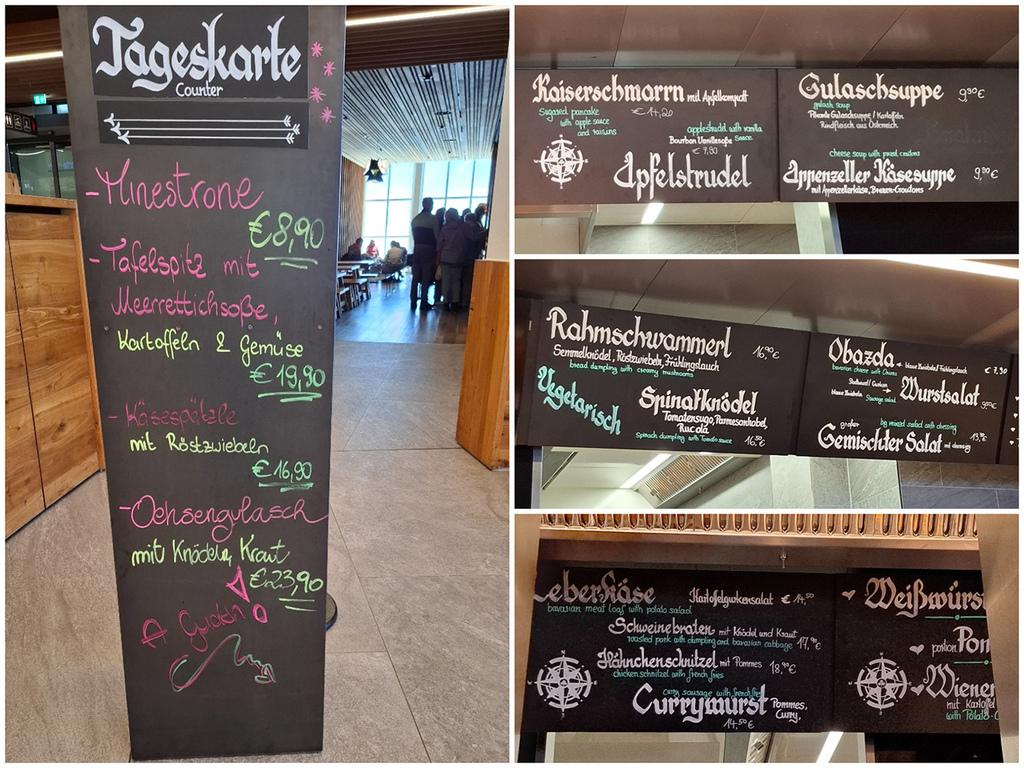 Tageskarte
Counter
-Minestrone
€8,90
-Tafelspitz mit
Meerrettichsoße,
Kartoffeln & Gemüse
€19,90
-Käsespätzle
mit Röstzwiebeln
€16,90
-Ochsengulasch
mit Knödeln, Kraut
€23,90
A Guadn!
Kaiserschmarrn mit Apfelkompott
€14,20
Sugared pancake
with apple sauce
and raisins
applestrudel with vanilla
sauce
Bourbon Vanillesoße
€7,90
Apfelstrudel
Gulaschsuppe 9,90€
gulash soup
Pikante Gulaschsuppe / Kartoffeln
Rindfleisch aus Österreich
cheese soup with
Appenzeller Käsesuppe 9,90€
mit Appenzellerkäse, Brezen-Croutons
Rahmschwammerl 16,90€
Semmelknödel, Röstzwiebeln, Frühlingslauch
bread dumpling with creamy mushrooms
Vegetarisch
Spinatknödel
Tomatensugo, Parmesanhobel,
Rucola
Spinach dumpling with Tomato sauce 16,50€
Obazda
€7,90
bavarian cheese with
Wurstsalat
Sausage salad
big mixed salad with dressing
großer
Gemischter Salat mit dressing
13,90€
Leberkäse Kartoffelgurkensalat €14,50
bavarian meat loaf with potato salad
Schweinebraten mit Knödel und Kraut
roasted pork with dumpling and bavarian cabbage 17,90€
Hähnchenschnitzel mit Pommes 18,90€
chicken schnitzel with french fries
curry sausage with french fries
Currywurst Pommes,
Curry,
14,50€
Weißwürs
portion Pom
Wiener
mit Kartoffel
with Potato-